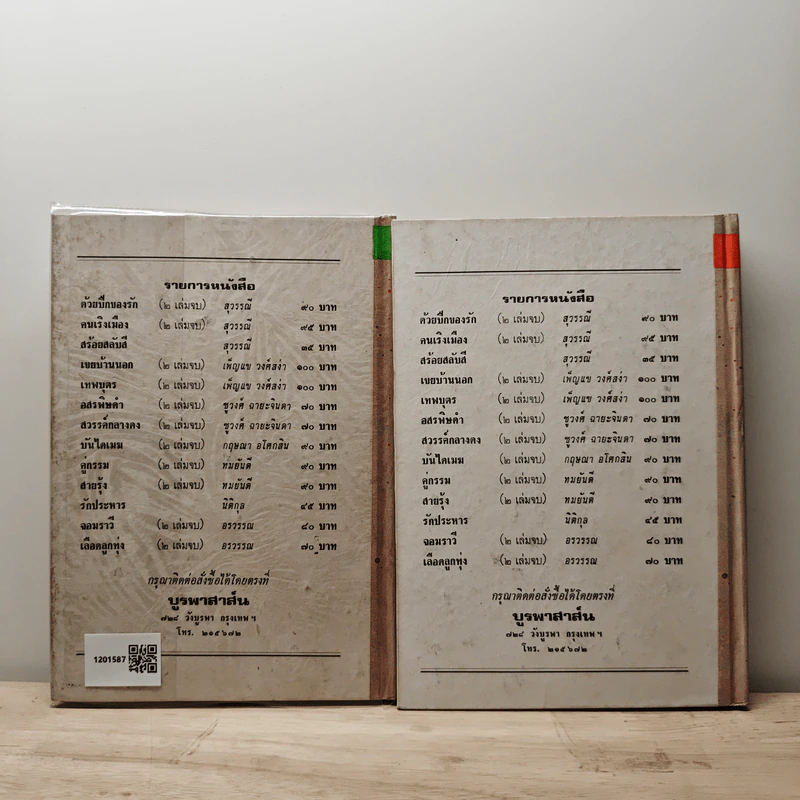 รายการหนังสือ
ด้วยปีกของรัก (๒ เล่มจบ) สุวรรณี ๙๐ บาท
คนเริงเมือง (๒ เล่มจบ) สุวรรณี ๙๕ บาท
สร้อยสลับสี สุวรรณี ๓๕ บาท
เขยบ้านนอก (๒ เล่มจบ) เพ็ญแข วงศ์สง่า ๑๐๐ บาท
เทพบุตร (๒ เล่มจบ) เพ็ญแข วงศ์สง่า ๑๐๐ บาท
อสรพิษดำ (๒ เล่มจบ) ชูวงศ์ ฉายะจินดา ๗๐ บาท
สวรรค์กลางดง (๒ เล่มจบ) ชูวงศ์ ฉายะจินดา ๗๐ บาท
บันไดเมฆ (๒ เล่มจบ) กฤษณา อโศกสิน ๙๐ บาท
คู่กรรม (๒ เล่มจบ) ทมยันตี ๙๐ บาท
สายรุ้ง (๒ เล่มจบ) ทมยันตี ๙๐ บาท
รักประหาร นิติกุล ๔๕ บาท
จอมราวี (๒ เล่มจบ) อรวรรณ ๘๐ บาท
เลือดลูกทุ่ง (๒ เล่มจบ) อรวรรณ ๗๐ บาท
กรุณาติดต่อสั่งซื้อได้โดยตรงที่
บูรพาสาส์น
๗๒๘ วังบูรพา กรุงเทพ ฯ
โทร. ๒๑๕๖๗๒
1201587
รายการหนังสือ
ด้วยปีกของรัก (๒ เล่มจบ) สุวรรณี ๙๐ บาท
คนเริงเมือง (๒ เล่มจบ) สุวรรณี ๙๕ บาท
สร้อยสลับสี สุวรรณี ๓๕ บาท
เขยบ้านนอก (๒ เล่มจบ) เพ็ญแข วงศ์สง่า ๑๐๐ บาท
เทพบุตร (๒ เล่มจบ) เพ็ญแข วงศ์สง่า ๑๐๐ บาท
อสรพิษดำ (๒ เล่มจบ) ชูวงศ์ ฉายะจินดา ๗๐ บาท
สวรรค์กลางดง (๒ เล่มจบ) ชูวงศ์ ฉายะจินดา ๗๐ บาท
บันไดเมฆ (๒ เล่มจบ) กฤษณา อโศกสิน ๙๐ บาท
คู่กรรม (๒ เล่มจบ) ทมยันตี ๙๐ บาท
สายรุ้ง (๒ เล่มจบ) ทมยันตี ๙๐ บาท
รักประหาร นิติกุล ๔๕ บาท
จอมราวี (๒ เล่มจบ) อรวรรณ ๘๐ บาท
เลือดลูกทุ่ง (๒ เล่มจบ) อรวรรณ ๗๐ บาท
กรุณาติดต่อสั่งซื้อได้โดยตรงที่
บูรพาสาส์น
๗๒๘ วังบูรพา กรุงเทพ ฯ
โทร. ๒๑๕๖๗๒